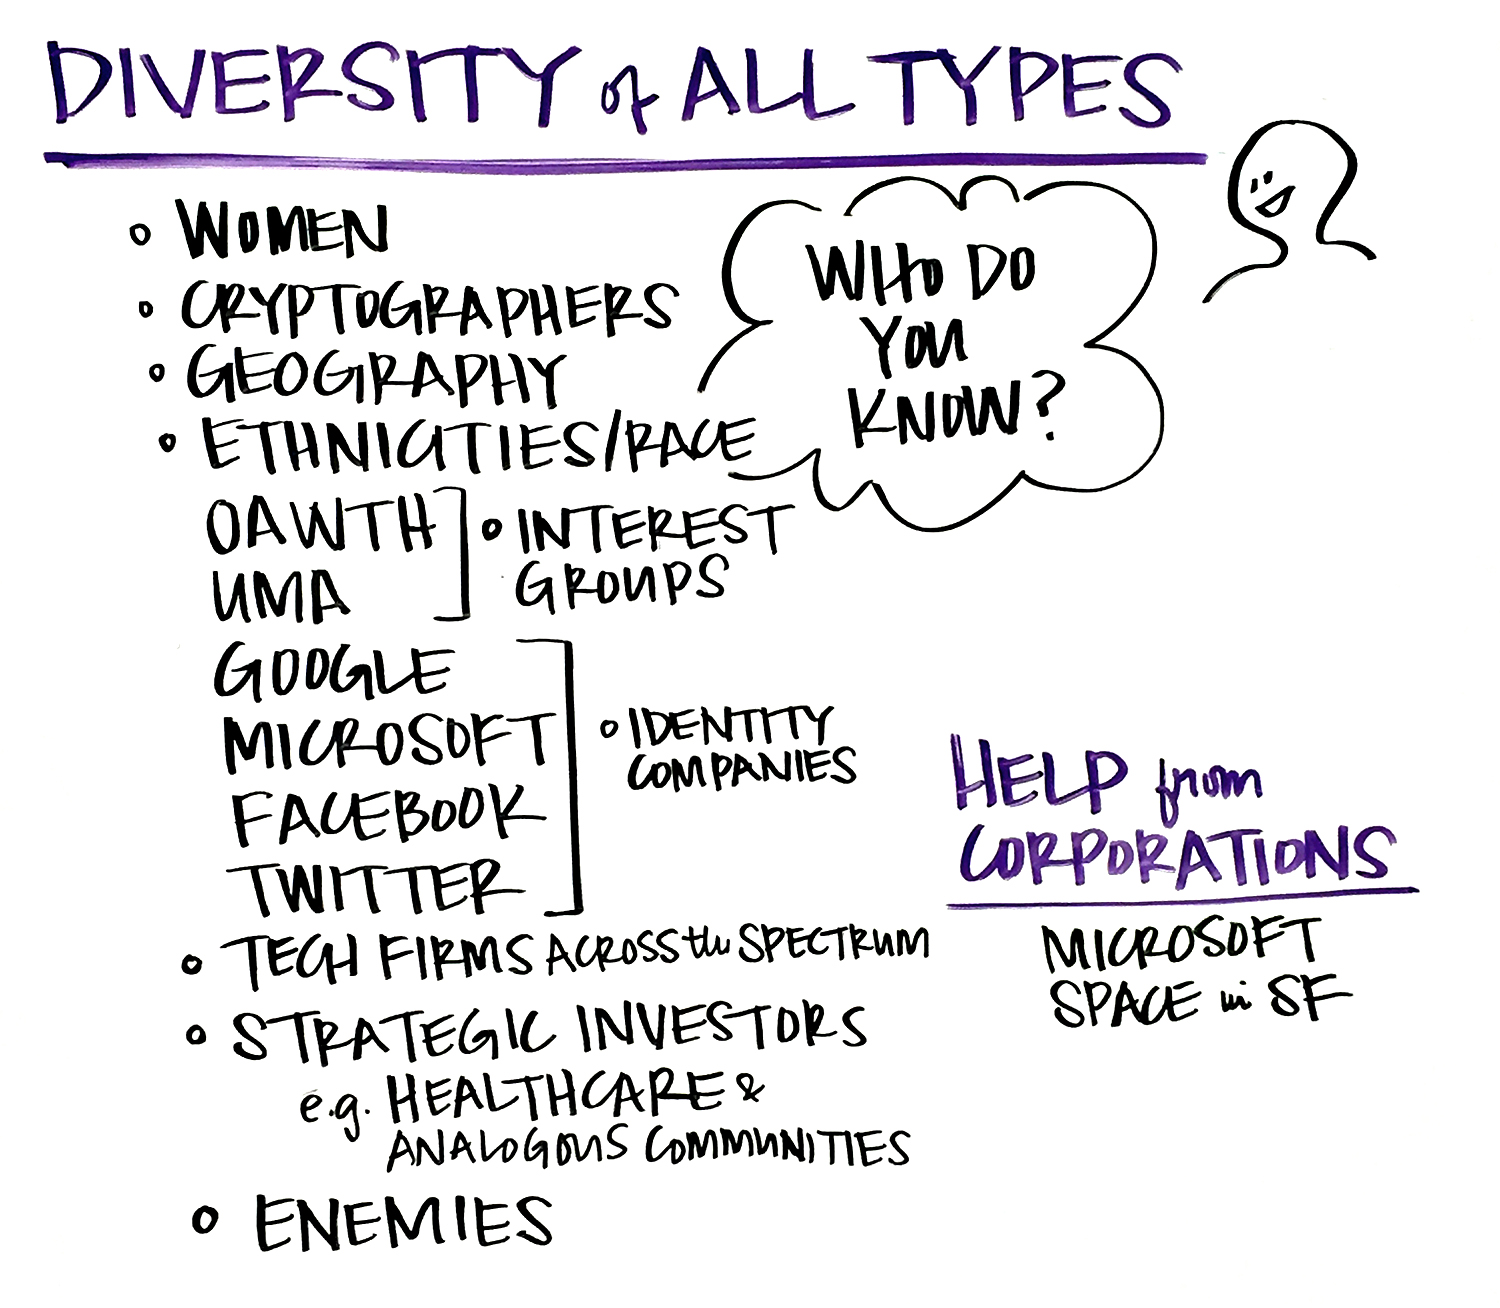 DIVERSITY of ALL TYPES
• WOMEN
• CRYPTOGRAPHERS
• GEOGRAPHY
• ETHNICITIES/RACE
WHO DO
YOU
KNOW?
OAWTH
UMA
• INTEREST
GROUPS
GOOGLE
MICROSOFT
FACEBOOK
TWITTER
• IDENTITY
COMPANIES
• TECH FIRMS ACROSS the SPECTRUM
• STRATEGIC INVESTORS
e.g. HEALTHCARE &
ANALOGOUS COMMUNITIES
• ENEMIES
HELP from
CORPORATIONS
MICROSOFT
SPACE in SF